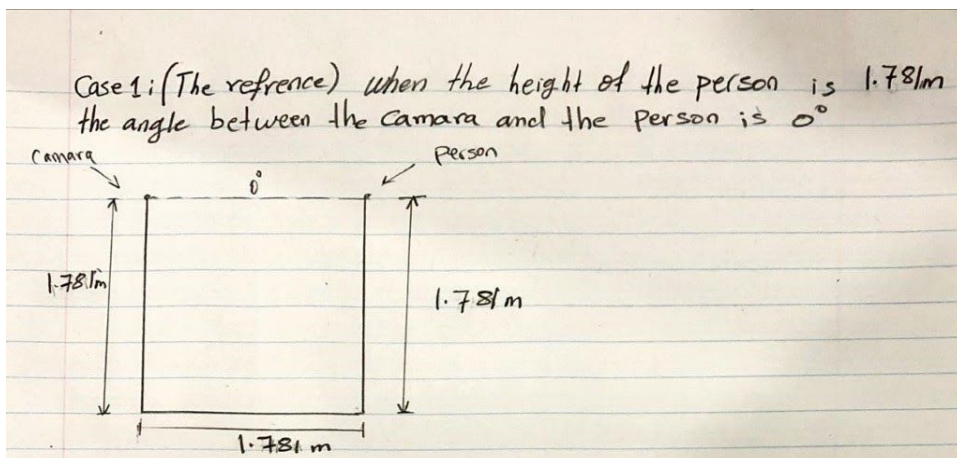 Case 1: (The refrence) when the height of the person is 1.781m
the angle between the camara and the person is 0°
Camara
person
0°
1.781m
1.781 m
1.781 m